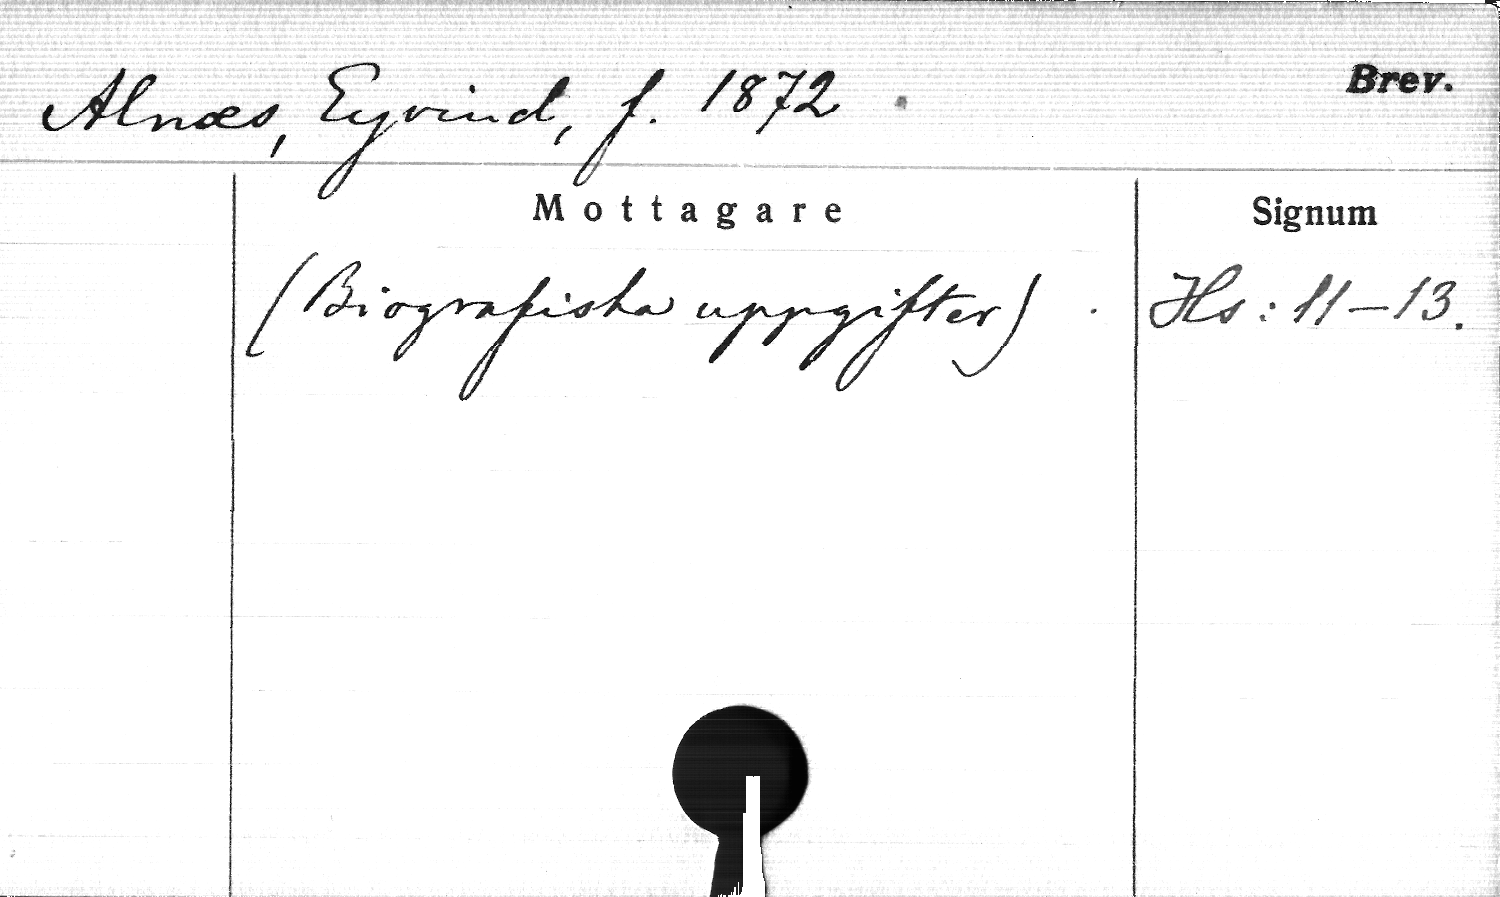 Alnæs, Eyvind, f. 1872
Brev.
Mottagare
Signum
(Biografiska uppgifter).
Hs: 11-13.